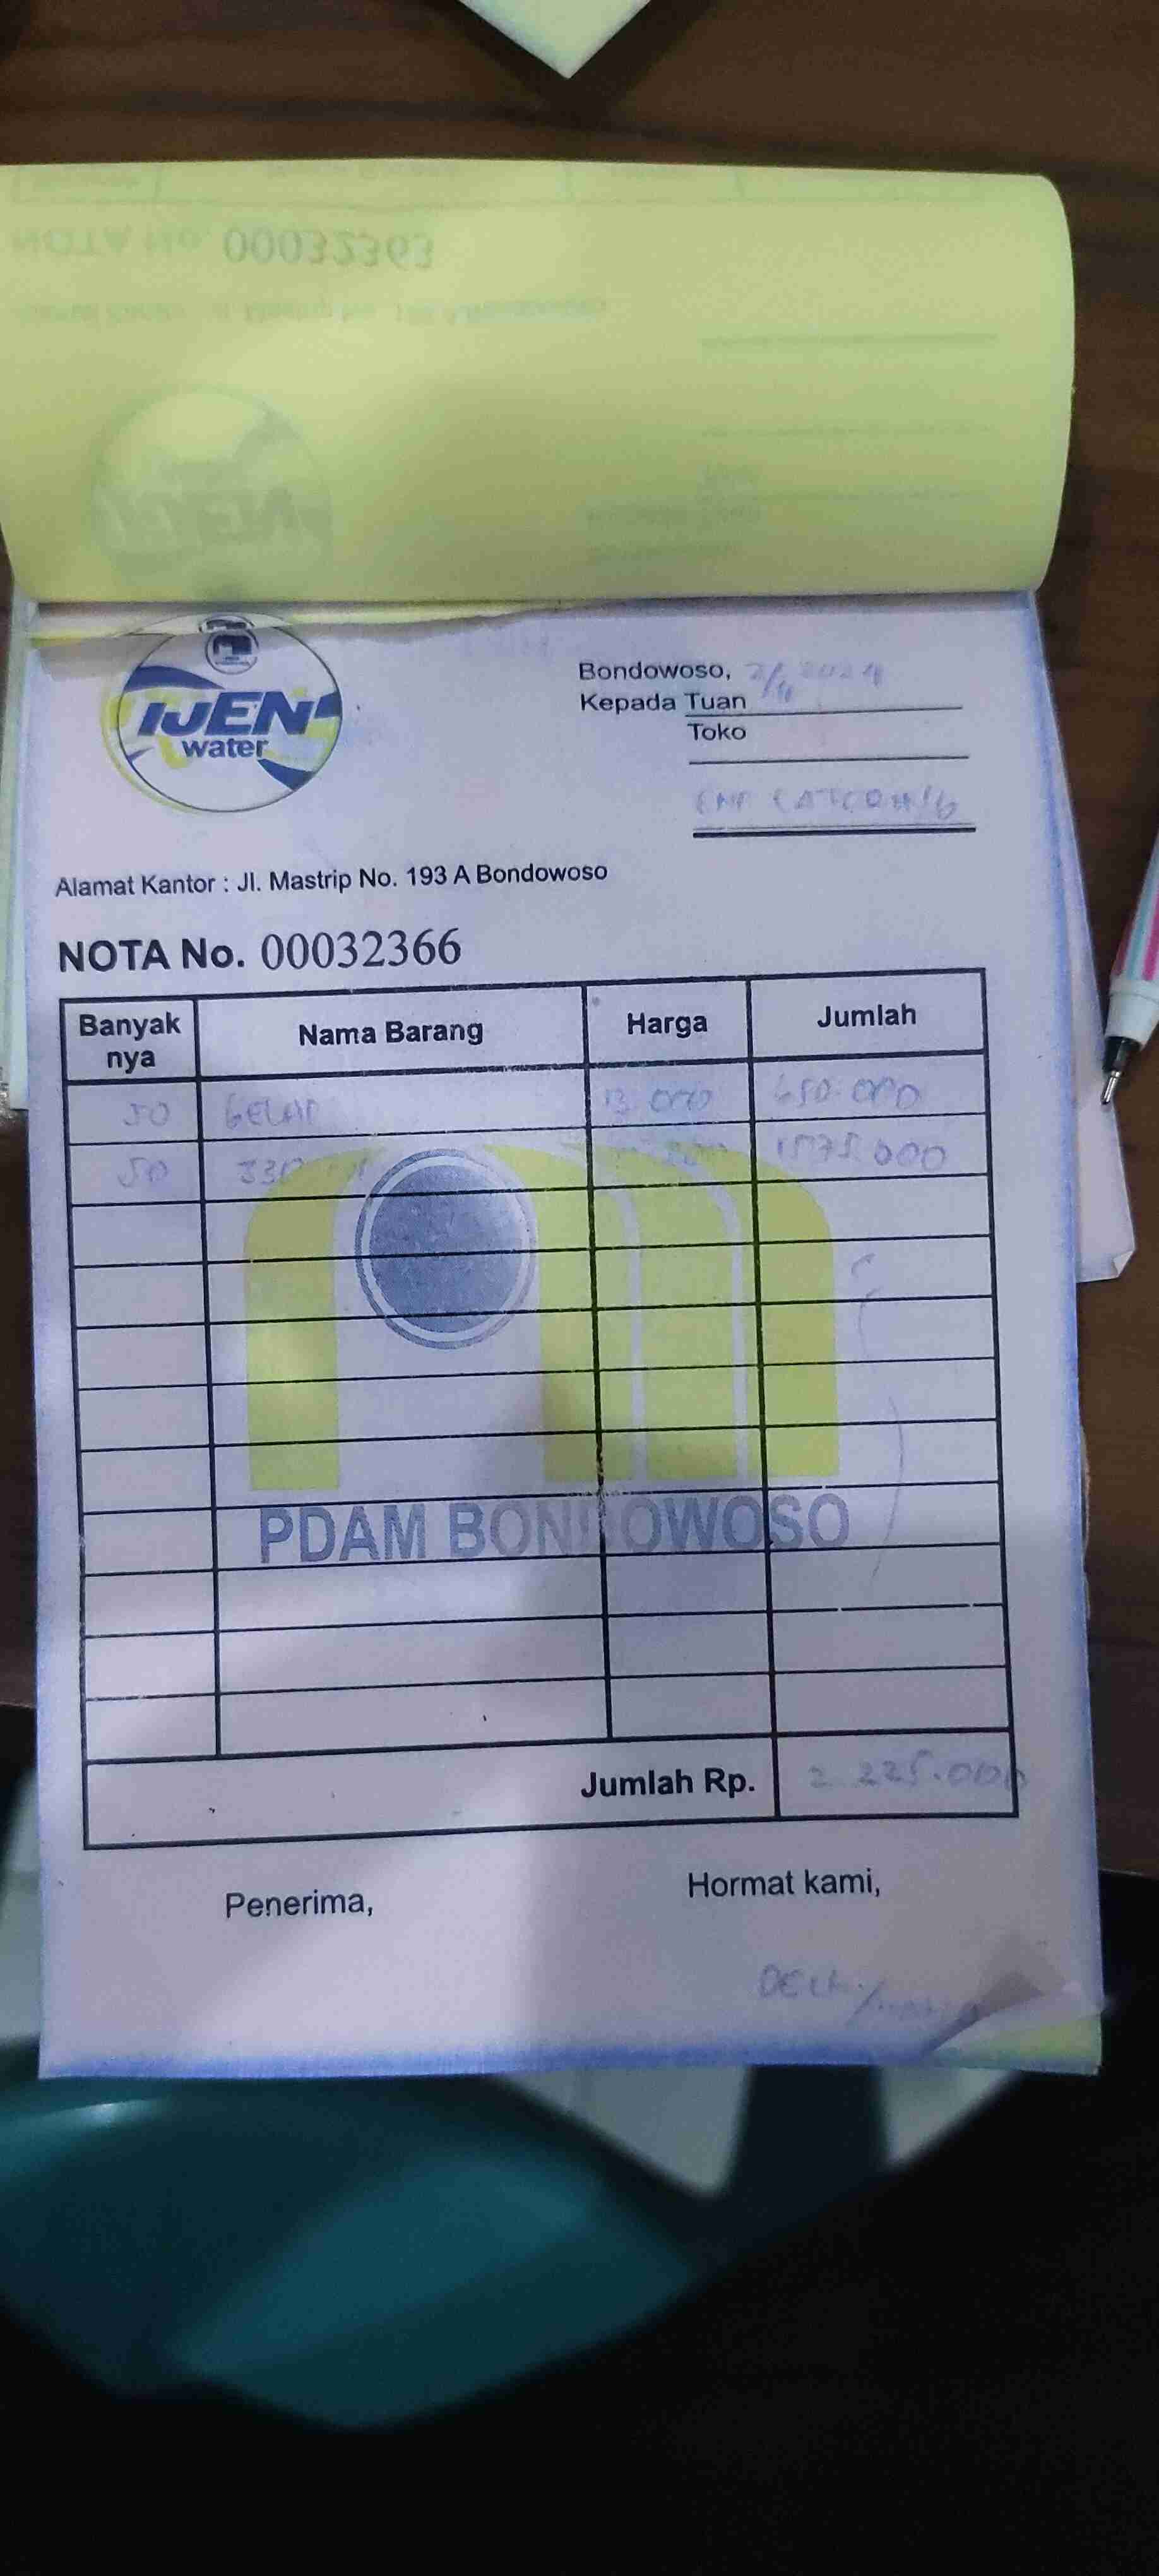 NOTA No. 00032363
IJEN
water
Bondowoso, 2/4 2024
Kepada Tuan
Toko
Alamat Kantor : Jl. Mastrip No. 193 A Bondowoso
NOTA No. 00032366
Banyak nya Nama Barang Harga Jumlah
50 GELAS 13.000 650.000
50 330 1575.000
PDAM BONDOWOSO
Jumlah Rp. 2.225.000
Penerima,
Hormat kami,